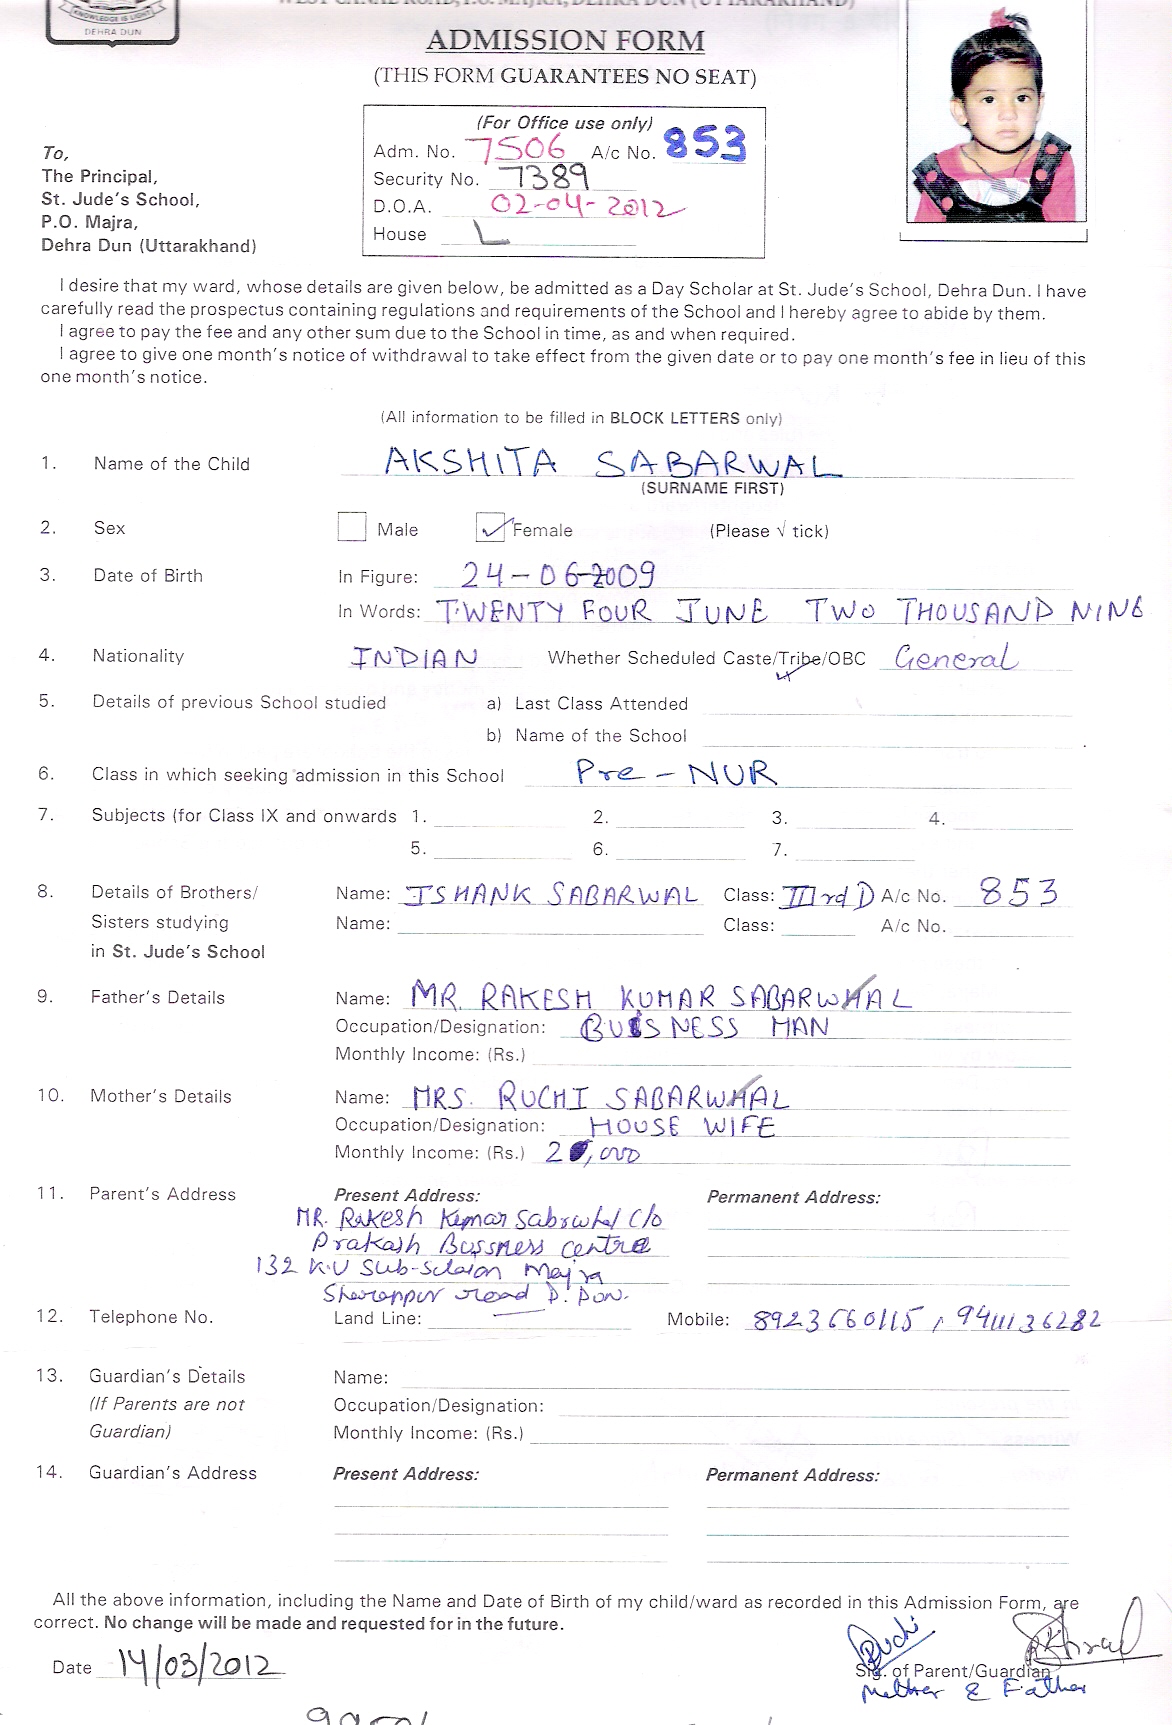 KNOWLEDGE IS LIGHT
DEHRA DUN
WEST CANAL ROAD, P.O. MAJRA, DEHRA DUN (UTTARAKHAND)
ADMISSION FORM
(THIS FORM GUARANTEES NO SEAT)
(For Office use only)
Adm. No. 7506 A/c No. 853
Security No. 7389
D.O.A. 02-04-2012
House L
To,
The Principal,
St. Jude's School,
P.O. Majra,
Dehra Dun (Uttarakhand)
I desire that my ward, whose details are given below, be admitted as a Day Scholar at St. Jude's School, Dehra Dun. I have
carefully read the prospectus containing regulations and requirements of the School and I hereby agree to abide by them.
I agree to pay the fee and any other sum due to the School in time, as and when required.
I agree to give one month's notice of withdrawal to take effect from the given date or to pay one month's fee in lieu of this
one month's notice.
(All information to be filled in BLOCK LETTERS only)
1. Name of the Child AKSHITA SABARWAL
(SURNAME FIRST)
2. Sex Male Female (Please √ tick)
3. Date of Birth In Figure: 24-06-2009
In Words: TWENTY FOUR JUNE TWO THOUSAND NINE
4. Nationality INDIAN Whether Scheduled Caste/Tribe/OBC General
5. Details of previous School studied a) Last Class Attended
b) Name of the School
6. Class in which seeking admission in this School Pre-NUR
7. Subjects (for Class IX and onwards 1. 2. 3. 4.
5. 6. 7.
8. Details of Brothers/ Name: ISHANK SABARWAL Class: IIIrd D A/c No. 853
Sisters studying Name: Class: A/c No.
in St. Jude's School
9. Father's Details Name: MR. RAKESH KUMAR SABARWAL
Occupation/Designation: BUISNESS MAN
Monthly Income: (Rs.)
10. Mother's Details Name: MRS. RUCHI SABARWAL
Occupation/Designation: HOUSE WIFE
Monthly Income: (Rs.)
11. Parent's Address Present Address: Permanent Address:
MR. Rakesh Kumar Sabrwhal C/o
Prakash Bussness centre
132 K.V Sub-Station Majra
road D. Dun.
12. Telephone No. Land Line: Mobile: 8923660115, 9411136282
13. Guardian's Details Name:
(If Parents are not Occupation/Designation:
Guardian) Monthly Income: (Rs.)
14. Guardian's Address Present Address: Permanent Address:
All the above information, including the Name and Date of Birth of my child/ward as recorded in this Admission Form, are
correct. No change will be made and requested for in the future.
Ruchi
Date 14/03/2012 Sig. of Parent/Guardian
Mother & Father